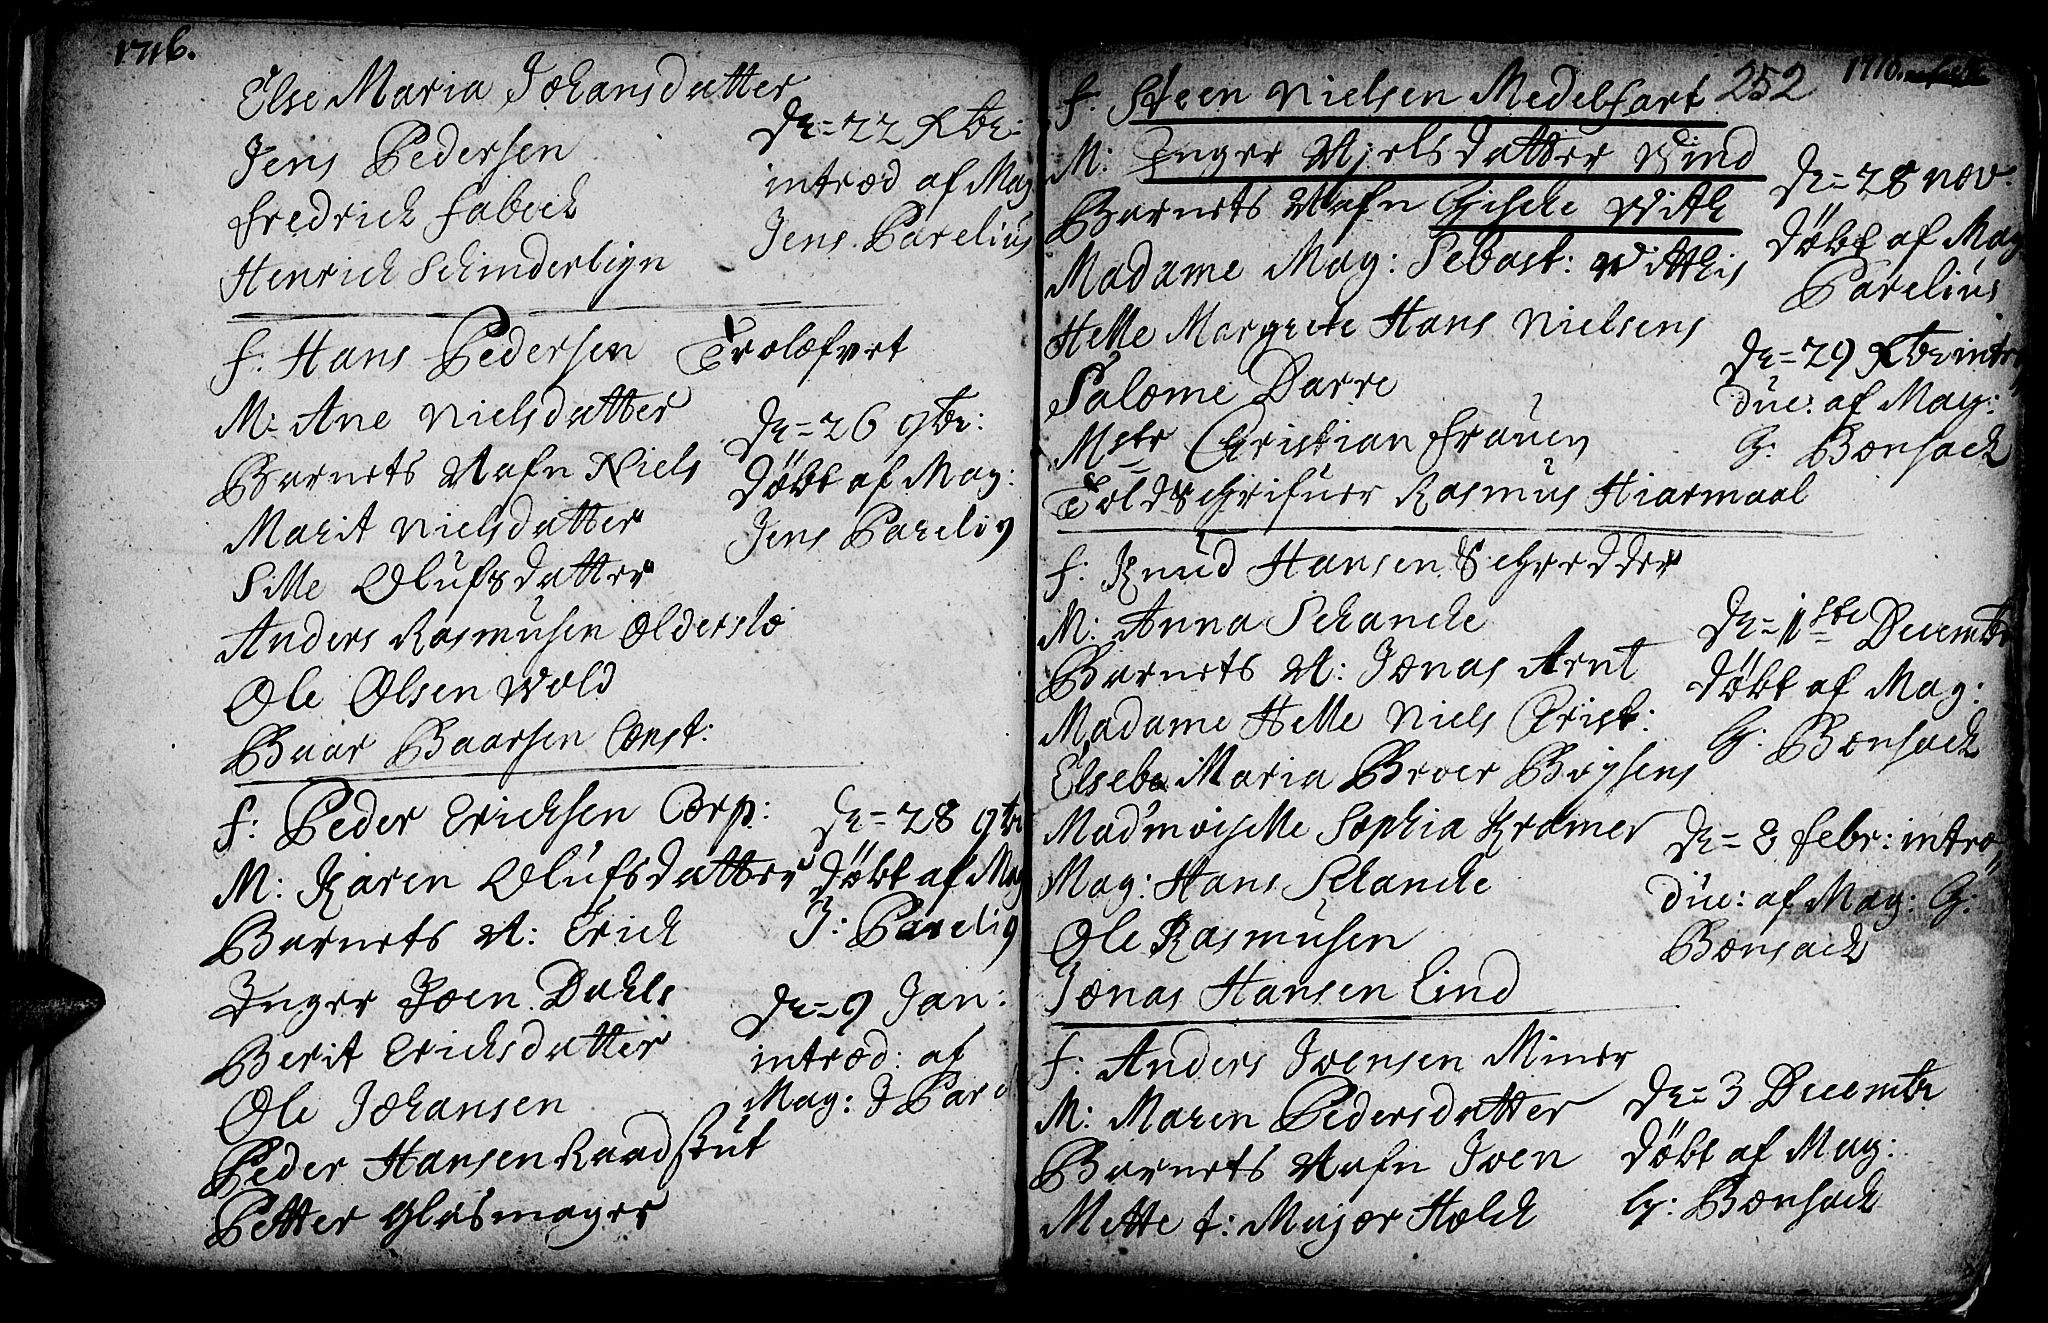 1716.
Else Maria Johansdatter
Jens Pedersen
Fredrich Fabeck
Henrich Schinderbiyn
De= 22 Xbr:
introd af Mag
Jens Parelius
F: Hans Pedersen
M: Ane Nielsdatter
Barnets Nafn Niels
Marit Nielsdatter
Sille Olufsdatter
Anders Rasmusen Olderslo
Ole Olsen Wold
Baar Baarsen Const:
De= 26 9br:
döbt af Mag:
Jens Pareli9
F: Peder Erichsen Corp:
M: Karen Olufsdatter
Barnets N: Erich
Inger Joen Dahls
Berit Erichsdatter
Ole Johansen
Peder Hansen Raadstut
Petter Glasmager
De= 28 9br
döbt af Mag
J: Pareli9
De= 9 Jan:
introd: af
Mag: J Parel
252 1716.
F: Steen Nielsen Medelfart
M: Inger Njelsdatter Wind
Barnets Nafn Gische With
Madame Mag: Sebast: Witthis
Helle Margrete Hans Nielsens
Salome Darre
Mstr Christian Frauen
Toldschrifuer Rasmus Hiarmaal
De= 28 Nov:
döbt af Mag
Parelius
De= 29 Xbr intro
due: af Mag:
G: Bonsach
F: Knud Hansen Schredder
M: Anna Schanche
Barnets N: Jonas Arnt
Madame Helle Niels Christ:
Elsebe Maria Broer Boysens
Mad'moiselle Sophia Kramer
Mag: Hans Schanche
Ole Rasmusen
Jonas Hansen Lind
De= 1ste Decembr
döbt af Mag:
G: Bonsach
De= 8 Febr: intro
due: af Mag: G:
Bonsach
F: Anders Ivensen Miner
M: Maren Pedersdatter
Barnets Nafn Iven
Mette f: Major Holch
De= 3 Decembr
döbt af Mag:
G: Bonsach